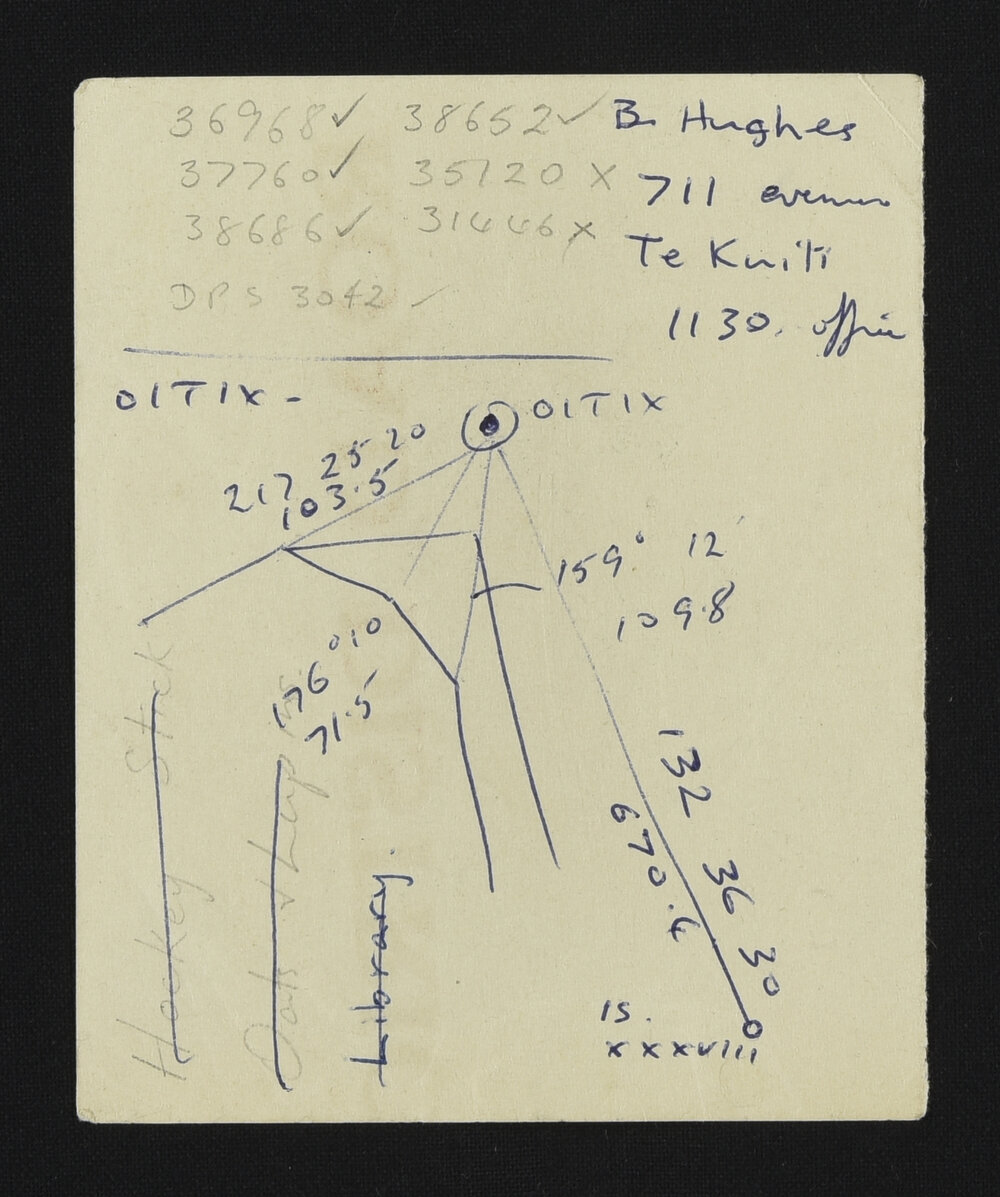 36968✓ 38652✓
37760✓ 35120 X
38686✓ 31446 X
DPS 3042 ✓
B. Hughes
711 evenur
Te Kuiti
1130. office
OITIX -
OITIX
217 25 20
103.5
159° 12'
109.8
176° 010
71.5
132 36 30
670.4
IS.
XXXVIII
Hockey Stick
Oats & Lup
Library.